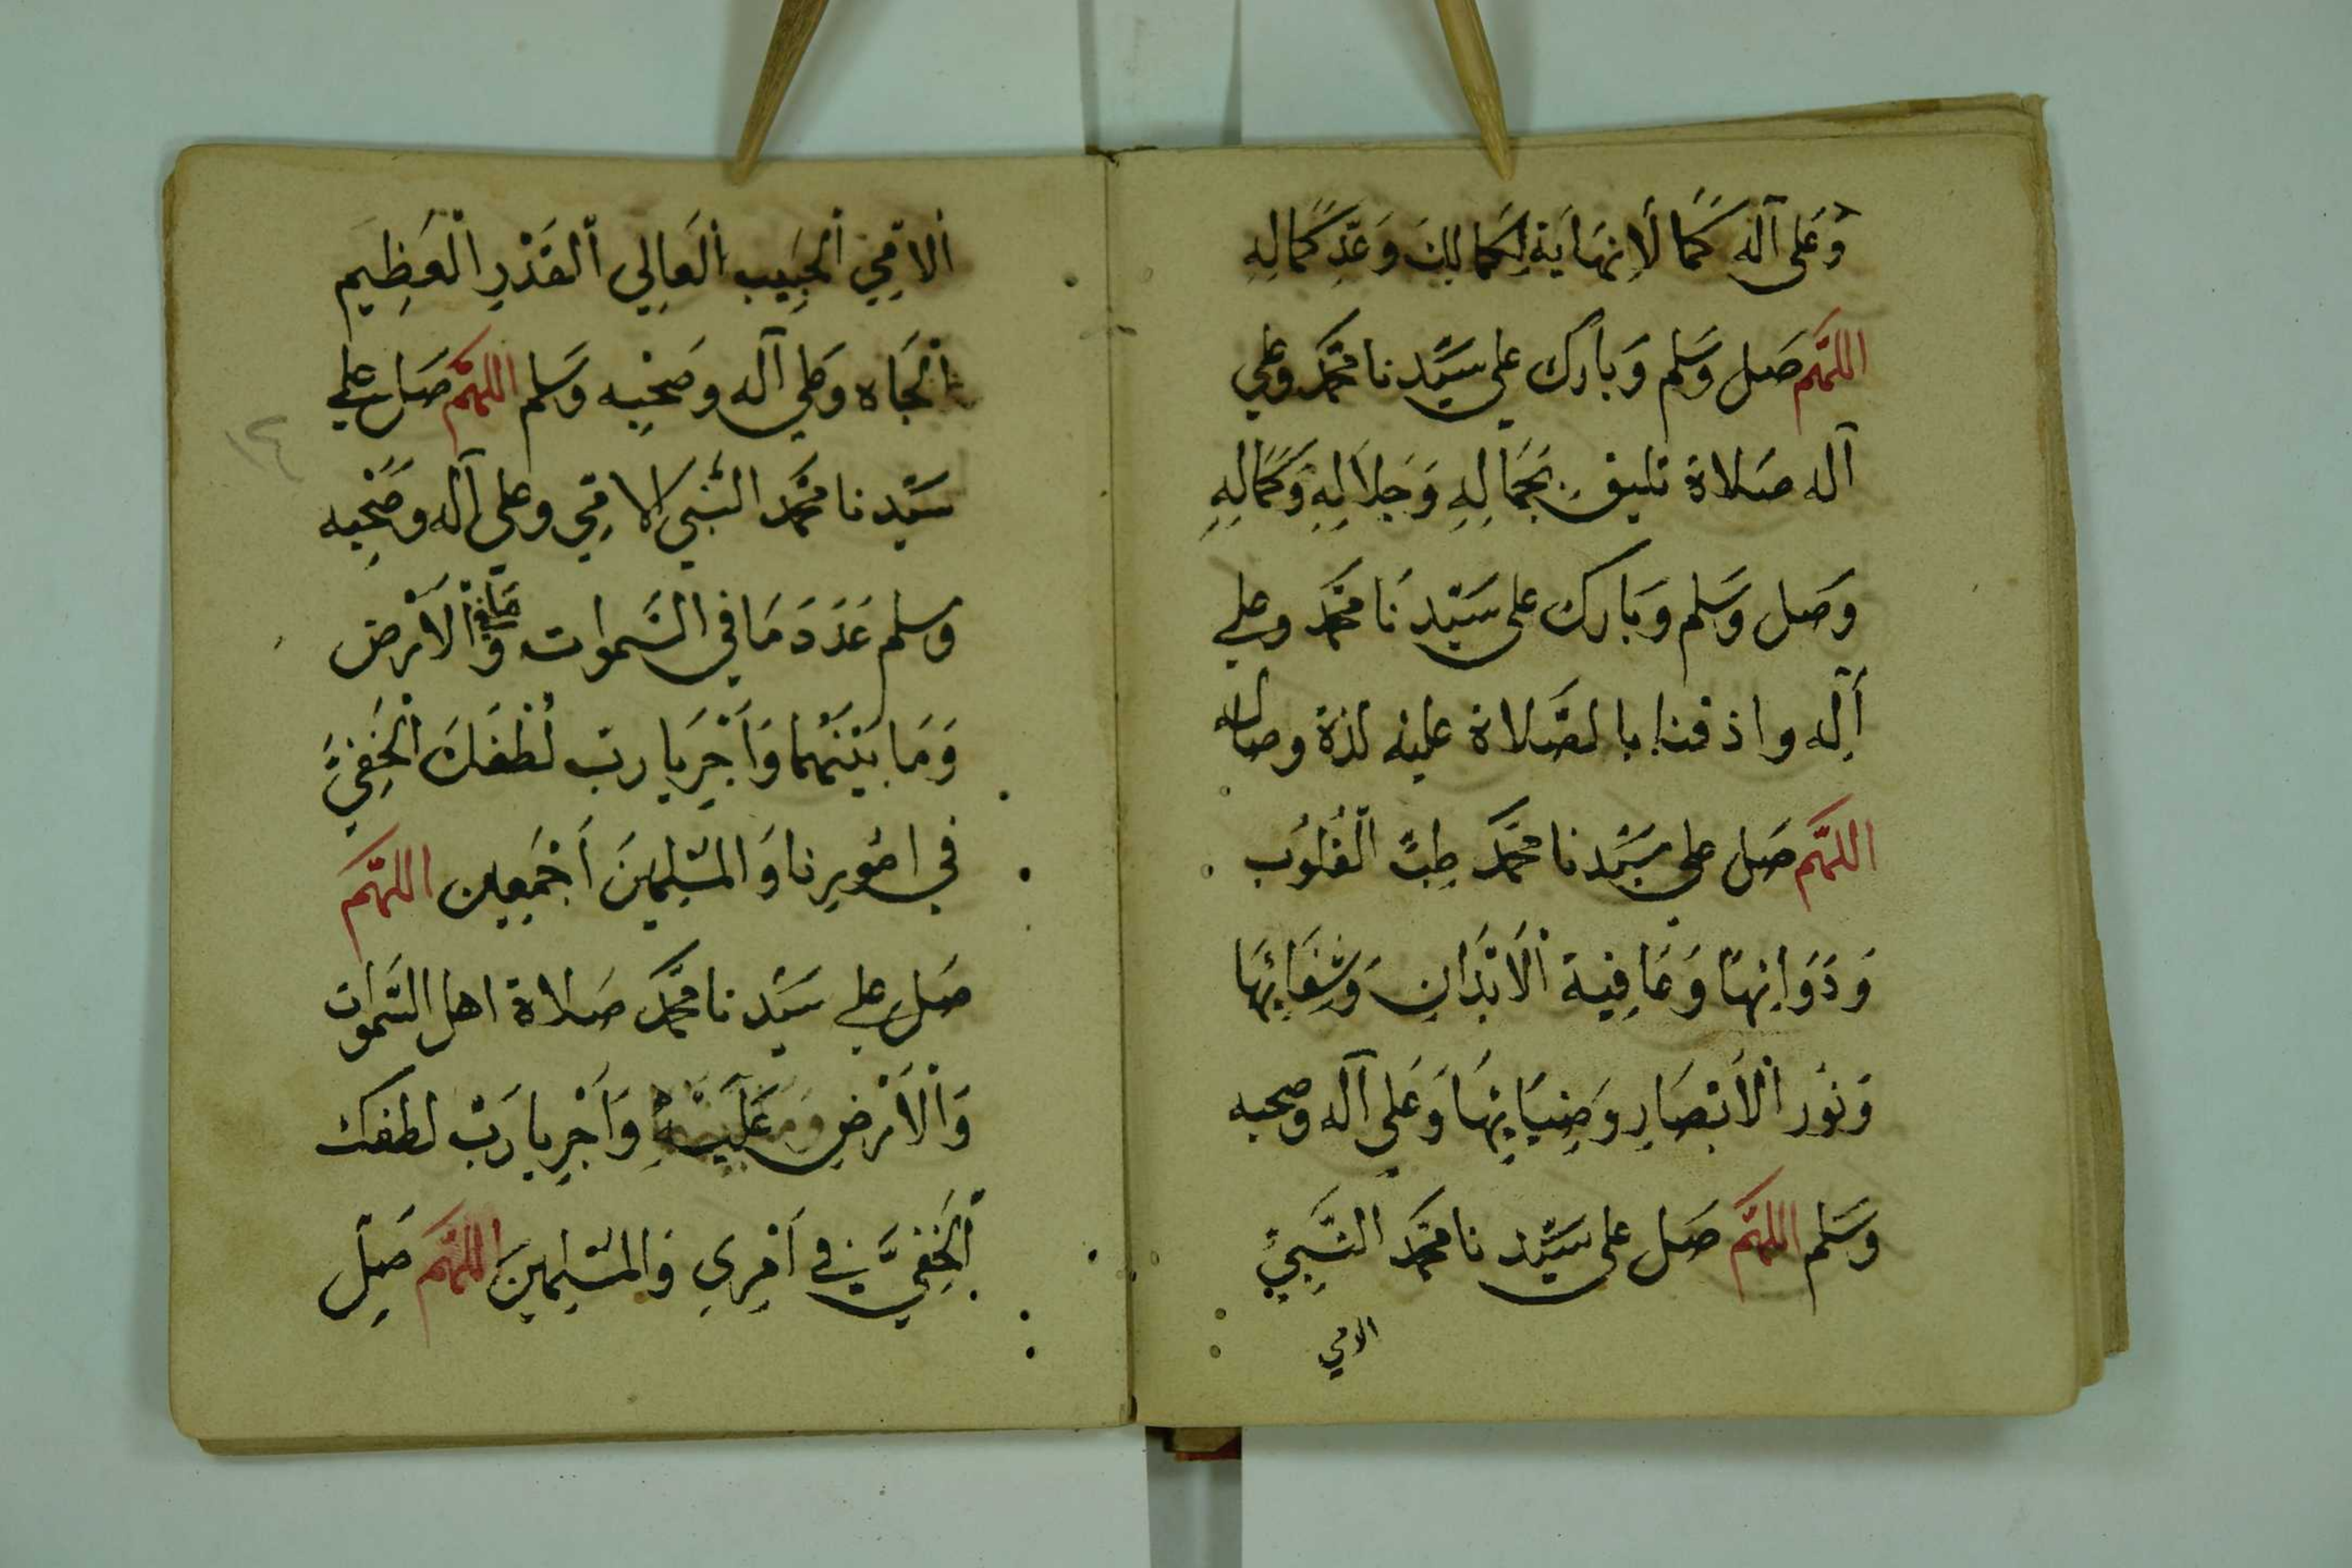 وَعَلى آله كَمَا لَا نِهَايَة لِكَمَالِكَ وَعَدِّ كَمَالِهِ
اللهُمَّ صَل وَسَلم وَبارك على سَيّدنا محَمَّد وعلي
آله صَلاة تليق بِجَمَالِهِ وَجَلَالِهِ وَكَمَالِهِ
وَصَل وَسَلم وَبَارك على سَيّدنَا محَمَّد وعلي
آلِه واذقنا بالصَّلاة عليْه لذة وصاله
اللهُمَّ صَل على سَيّدنا محَمَّد طِبِّ الْقُلُوب
وَدَوَائِهَا وَعَافِيَة الْأَبْدَانِ وَشِفَائِهَا
وَنُور الْأَبْصَارِ وَضِيَائِهَا وَعَلى آله وصحبه
وَسَلم اللهُمَّ صَل على سَيّدنا محَمَّد النَّبِيِّ
الامي
الامِّي الْحَبِيب الْعَالِي الْقَدْرِ الْعَظِيم
الْجَاه وَعلى آله وصَحْبِه وَسَلم اللهُمَّ صَل علي
سَيّدنا محَمَّد النَّبي الامِّي وعلى آله وصَحْبِه
وسلم عَدَدَ مَا في السَّموات وَمَا في الْأَرْض
وَمَا بَيْنَهُمَا وَأَجْرِ يا رب لُطْفَكَ الْخَفِيَّ
في امُورِنا وَالمُسْلِمِينَ أَجْمَعِين اللهُمَّ
صَل علي سَيّدنا محَمَّد صَلاة اهل السَّموات
وَالْأَرْضِ عَلَيْهِ وَأَجْرِ يا رَبّ لطفك
الْخَفِيَّ في أَمْرِي وَالمُسْلِمِينَ اللهُمَّ صَلِ
١٢